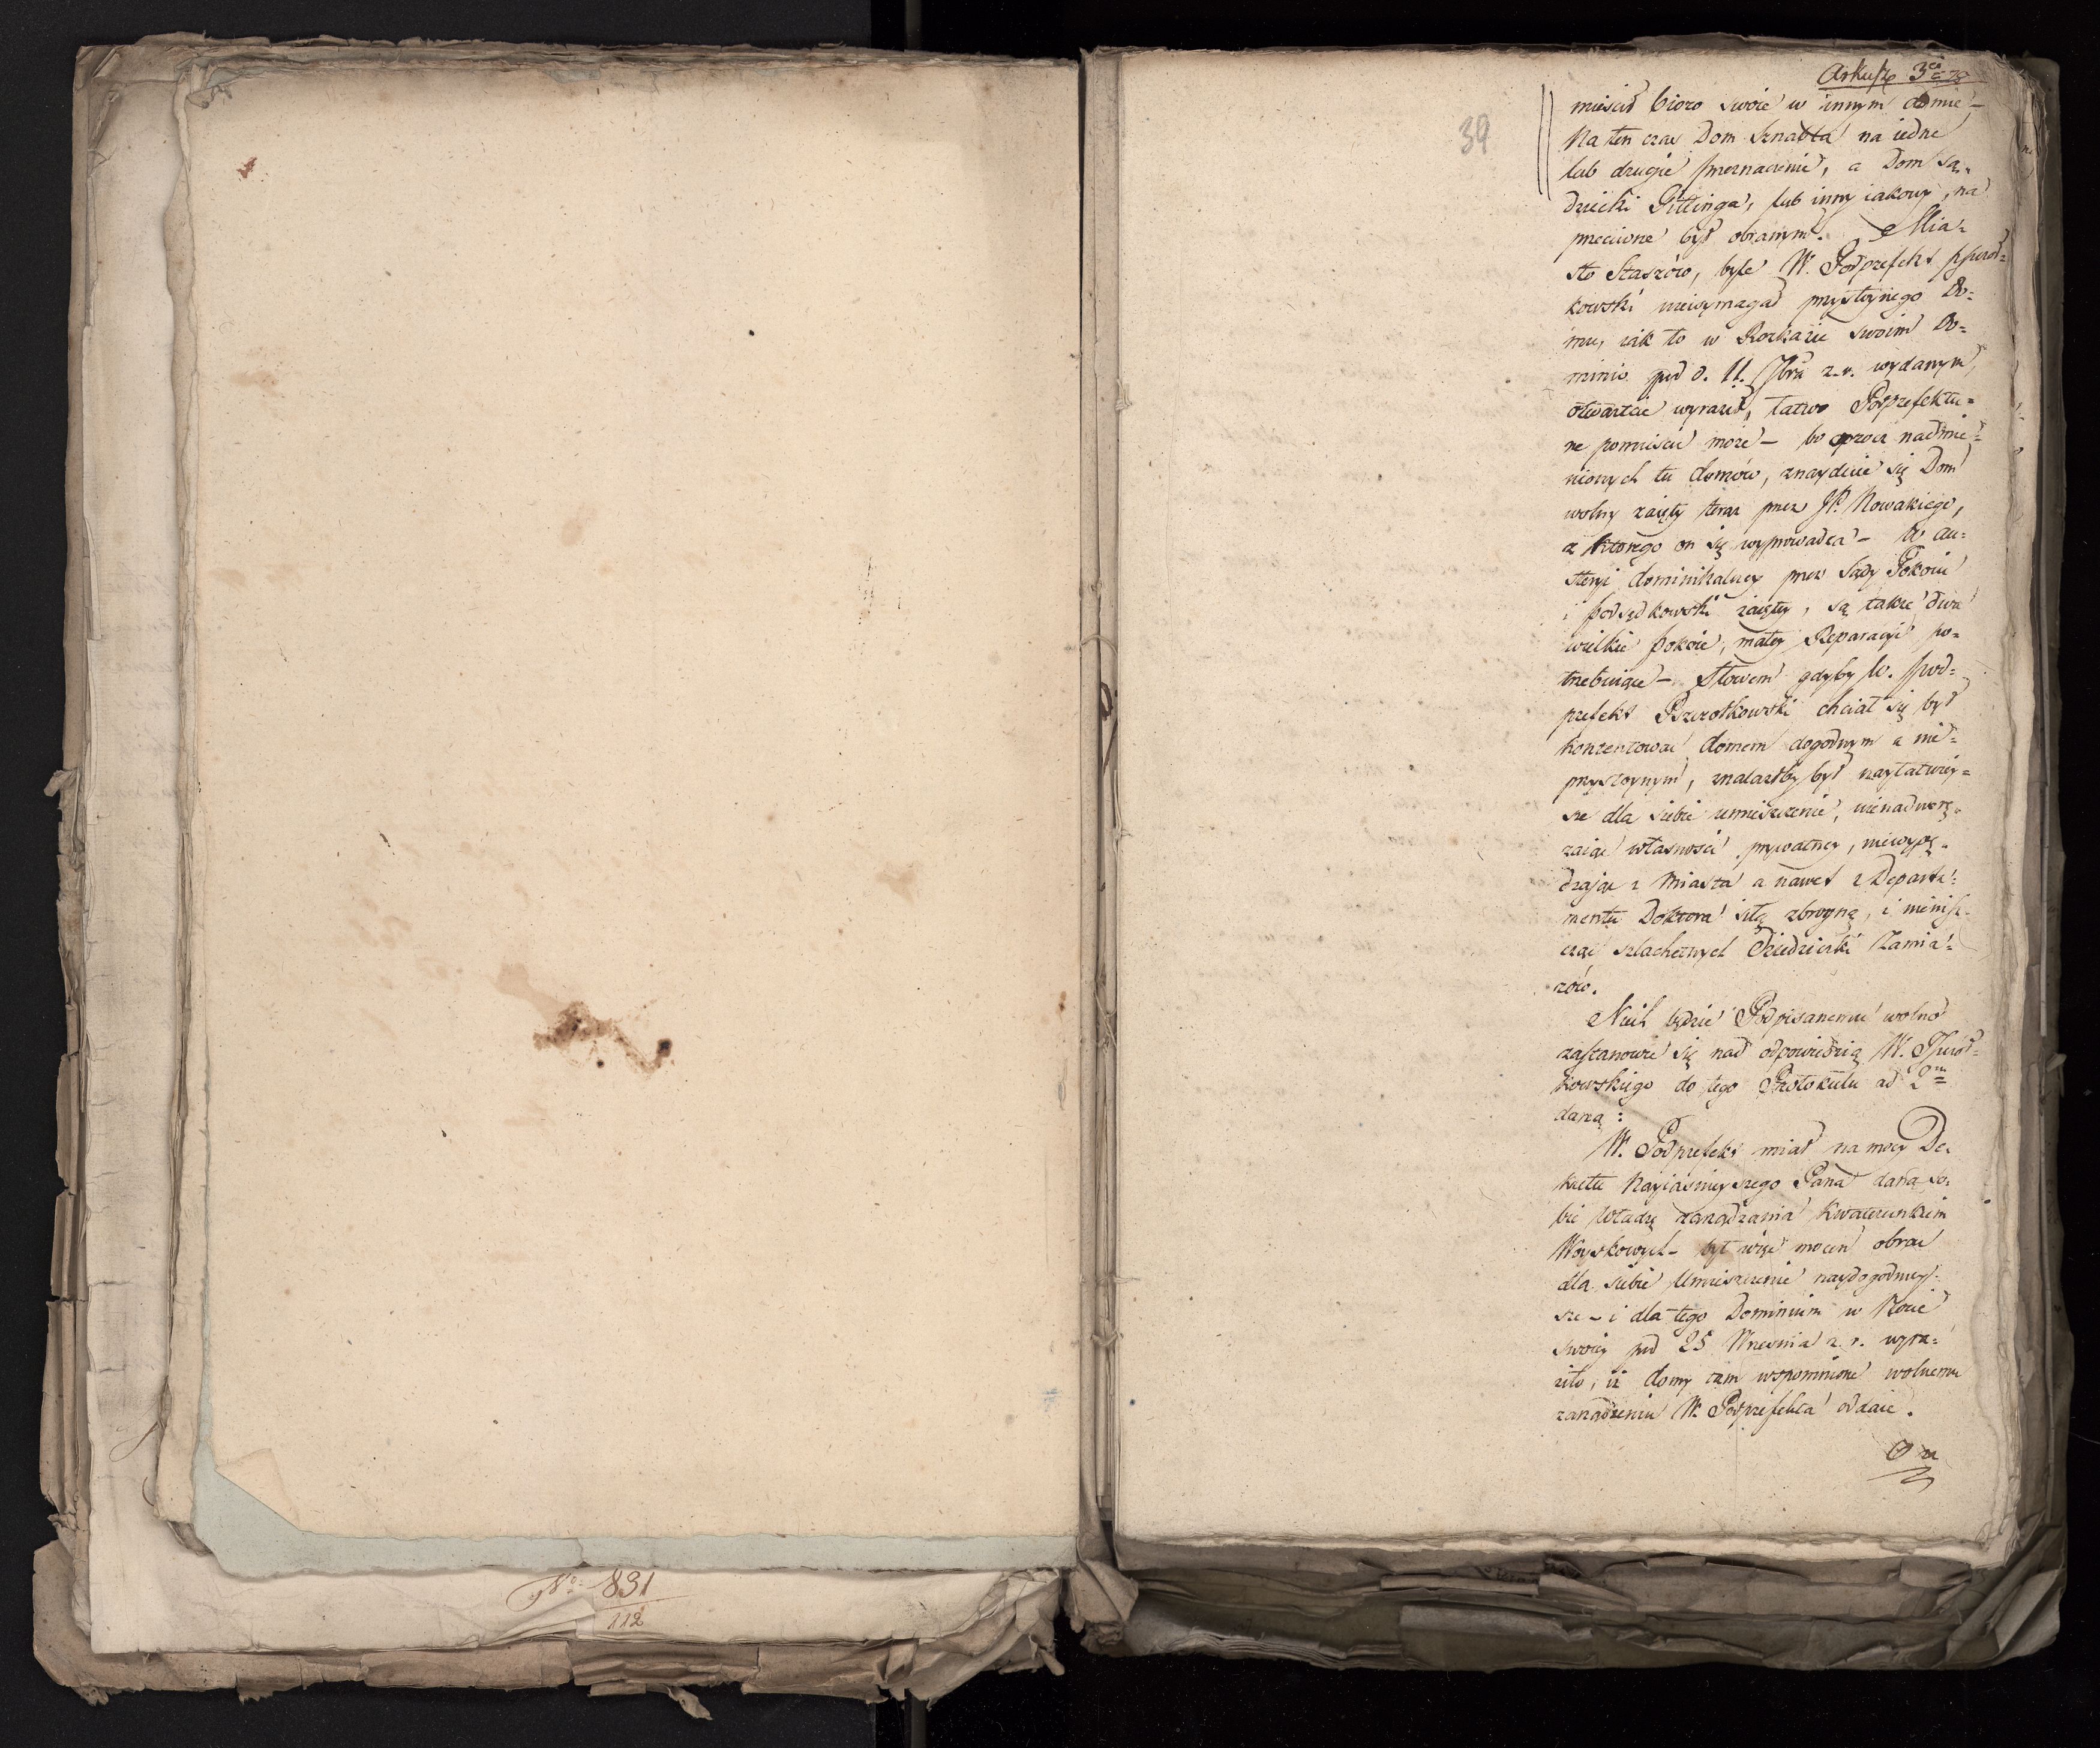 Arkusz 3ci 78
39
mieścił bióro swoie w innym domie –
Na ten czas Dom Sznabla na iedne
lub drugie przeznaczenie, a Dom Są=
dziecki Gitlinga, lub inny iakowy, na
przeciwne był obranym. Mia=
sto Staszów, byle W. Podprefekt
kowski niewymagał przystoynego Do=
mu, iak to w Rozkazie swoim Do=
minio pod d. 11. 7bra z. r. wydanym,
otwarcie wyraził, łatwo Podprefektu=
rę pomieścić może – bo oprocz nadmie=
nionych tu domów, znayduie się Dom
wolny zaięty teraz przez JP. Nowakiego,
z którego on się wyprowadza – W au=
steryi dominikalney przez Sądy Pokoiu
i podsędkowski zaiętey, są także dwa
wielkie pokoie, małey Reparacyi po=
trzebuiące – Słowem gdyby W. Pod=
prefekt chciał się był
kontentować domem dogodnym a nie=
przystoynym, znalazłby był nayłatwiey=
sze dla siebie umieszczenie, nienadwerę=
żaiąc własności prywatney, niewypę=
dzaiąc z Miasta a nawet z Departa=
mentu Doktora siłą zbroyną, i nienisz=
cząc szlachetnych Dziedziczki Zamia=
rów.
Niech będzie Podpisanemu wolno
zastanowić się nad odpowiedzią W.
kowskiego do tego Protokułu ad 2m
daną:
W. Podprefekt miał na mocy De=
kretu Nayiaśnieyszego Pana daną so=
bie Władzę zarządzania Kwaterunkiem
Woyskowych – był więc mocen obrać
dla siebie Umieszczenie naydogodniey=
sze – i dla tego Dominium w Nocie
swoiey pod 25 Września z. r. wyra=
ziło, iż domy tam wspomnione wolnemu
zarządzeniu W. Podprefekta oddaie.
On
No. 831
112